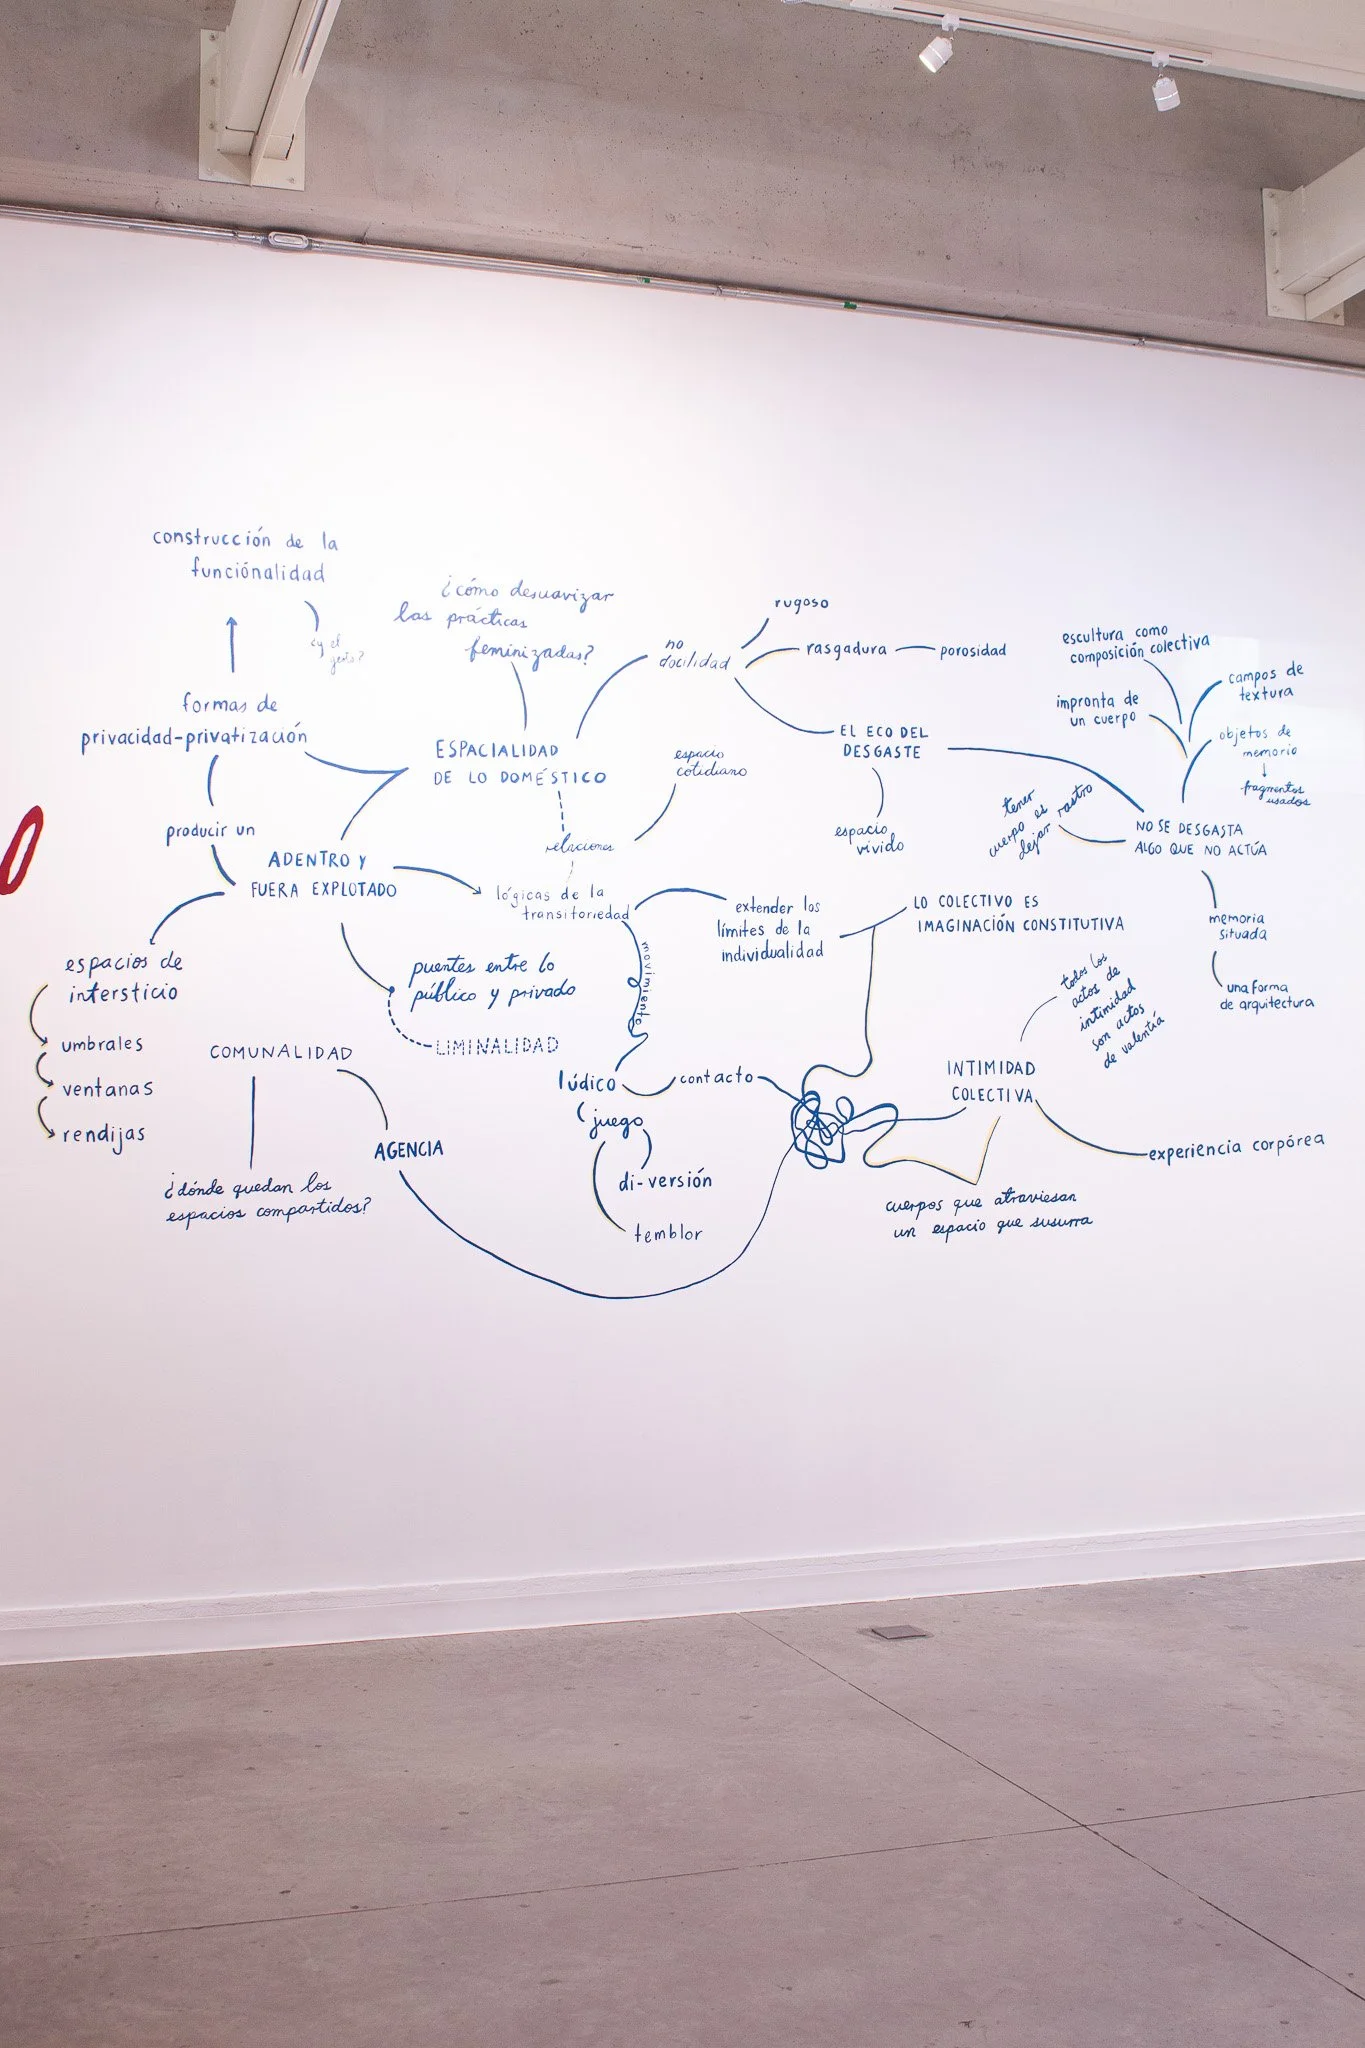 construcción de la
funciónalidad
¿y el
gesto?
¿cómo desuavizar
las prácticas
feminizadas?
no
docilidad
rugoso
rasgadura
porosidad
escultura como
composición colectiva
campos de
textura
impronta de
un cuerpo
objetos de
memoria
fragmentos
usados
formas de
privacidad-privatización
ESPACIALIDAD
DE LO DOMÉSTICO
espacio
cotidiano
EL ECO DEL
DESGASTE
espacio
vivido
tener
cuerpo es
dejar rastro
NO SE DESGASTA
ALGO QUE NO ACTÚA
producir un
ADENTRO Y
FUERA EXPLOTADO
relaciones
lógicas de la
transitoriedad
movimiento
extender los
límites de la
individualidad
LO COLECTIVO ES
IMAGINACIÓN CONSTITUTIVA
memoria
situada
una forma
de arquitectura
espacios de
intersticio
umbrales
ventanas
rendijas
puentes entre lo
público y privado
LIMINALIDAD
COMUNALIDAD
¿dónde quedan los
espacios compartidos?
AGENCIA
lúdico
(juego
di-versión
temblor
contacto
todos los
actos de
intimidad
son actos
de valentía
INTIMIDAD
COLECTIVA
experiencia corpórea
cuerpos que atraviesan
un espacio que susurra